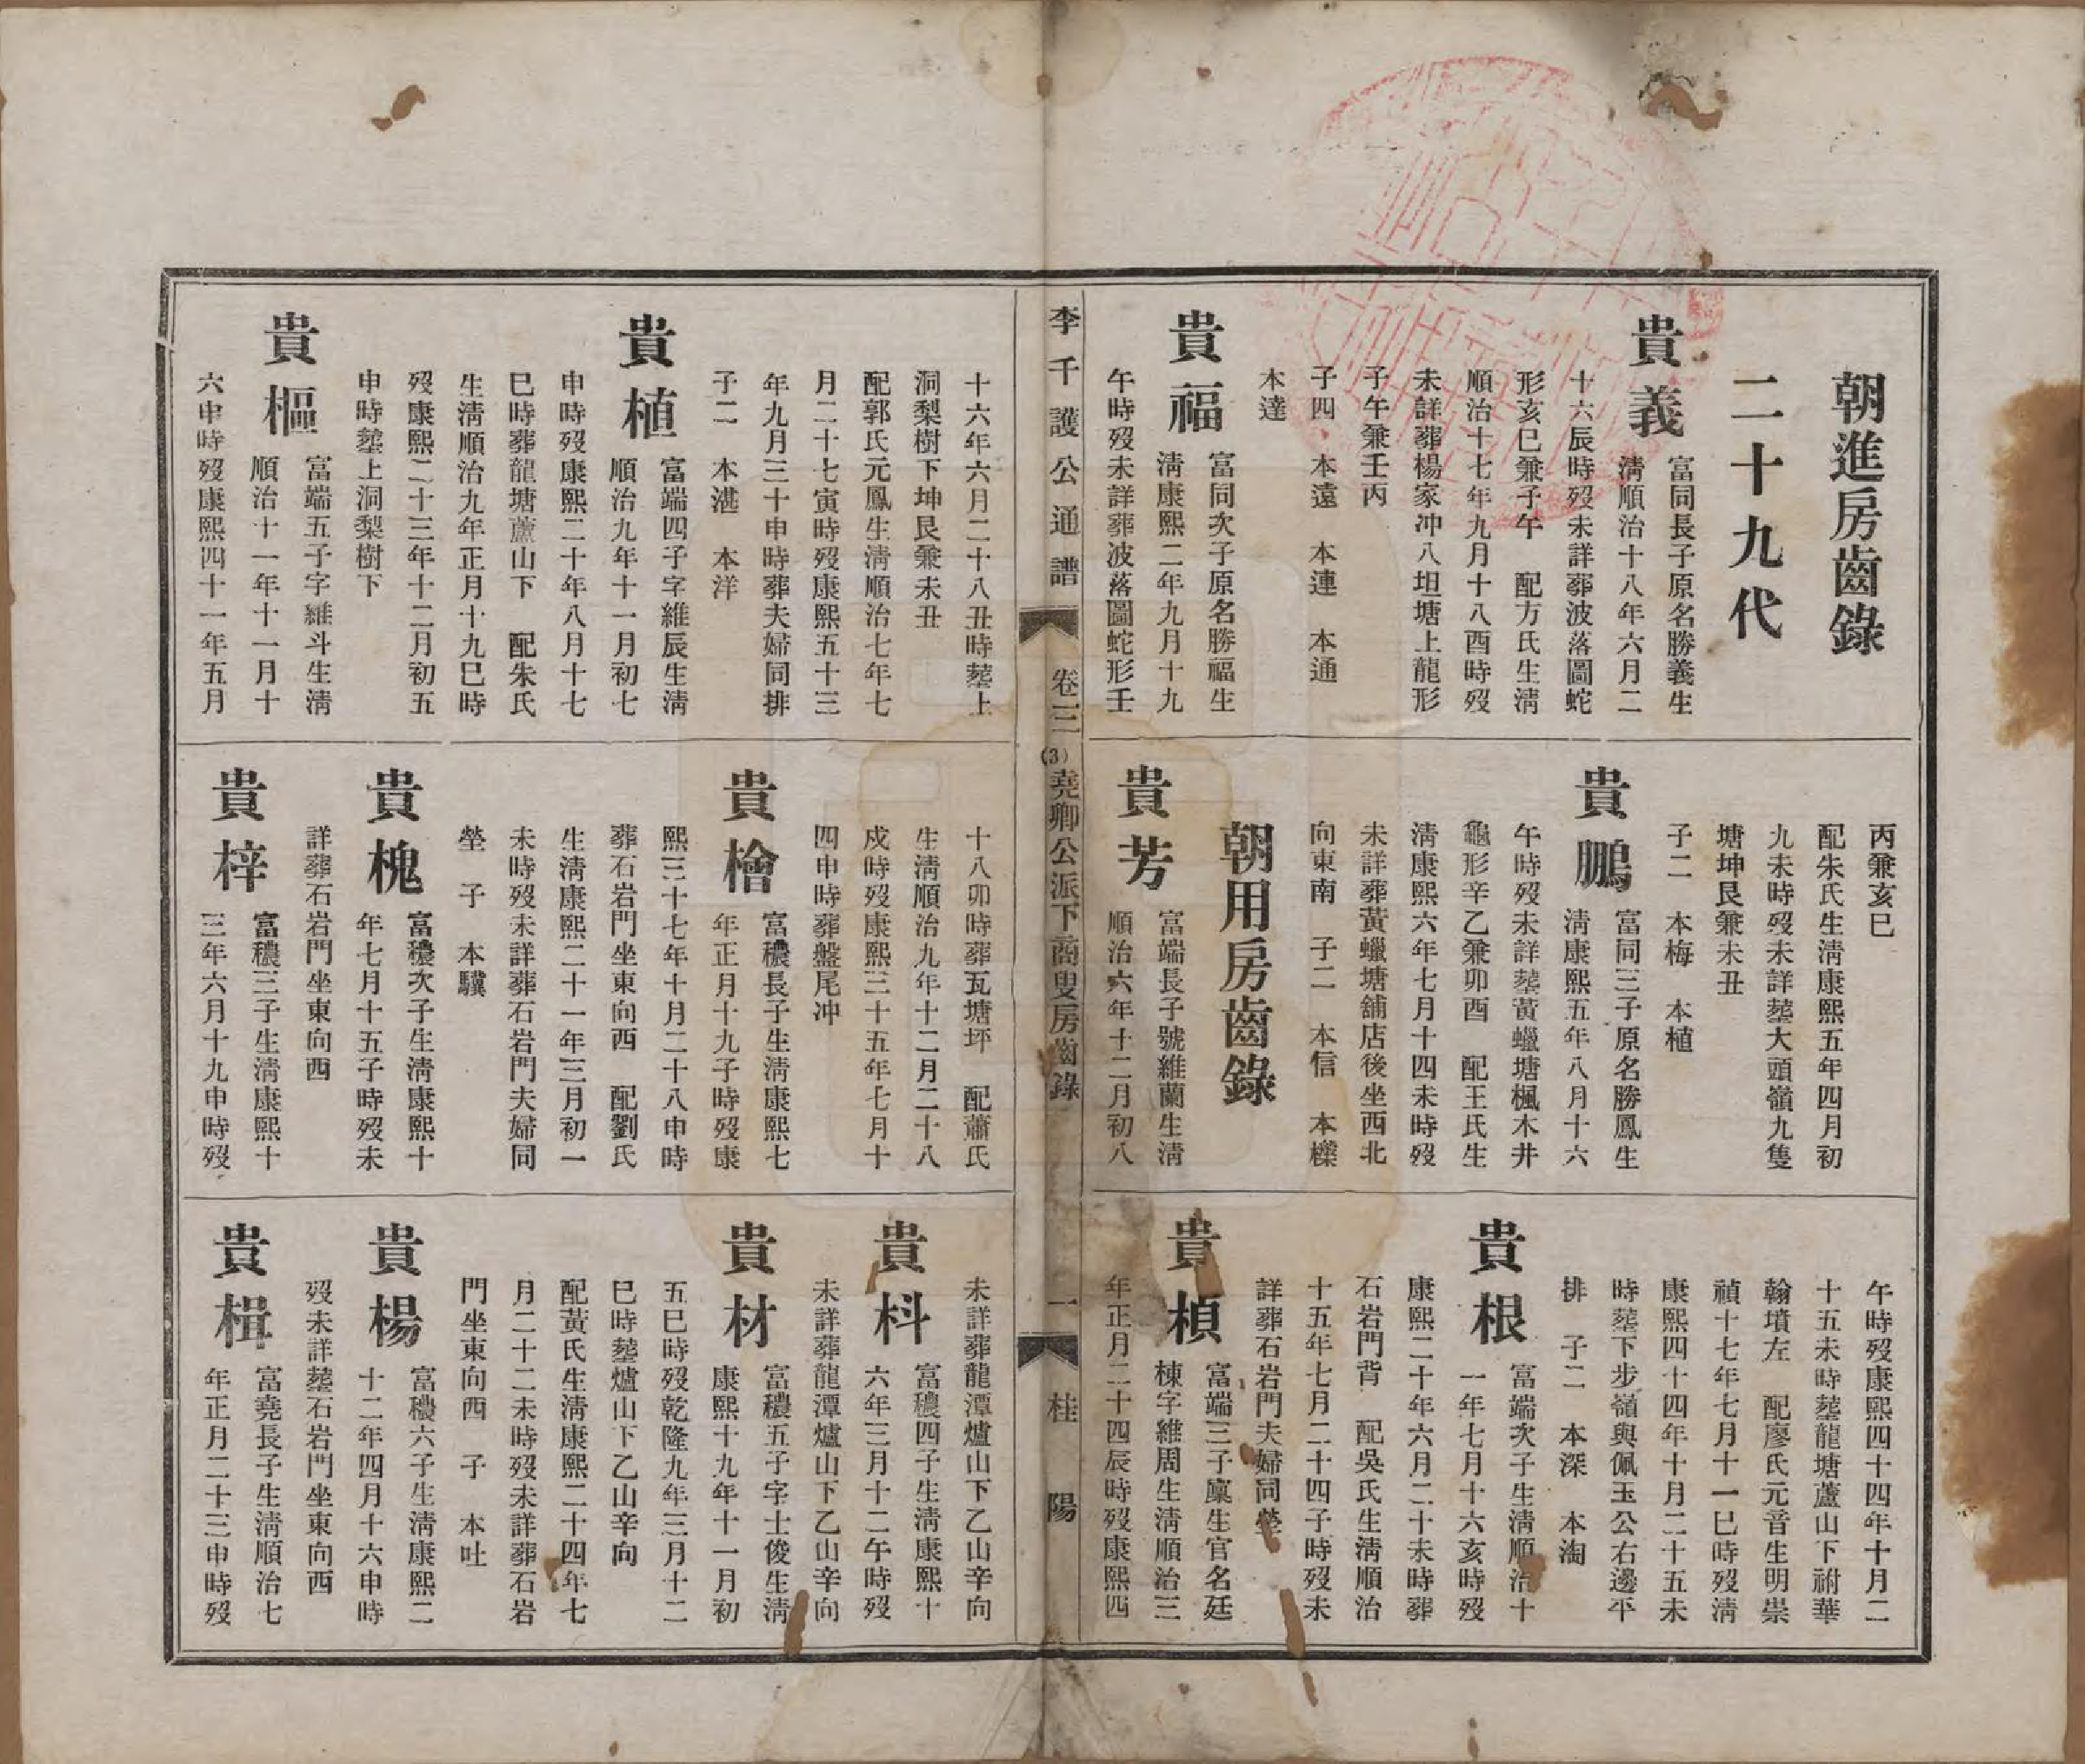 朝進房齒錄
二十九代
貴義
富同長子原名勝義生
清順治十八年六月二
十六辰時歿未詳葬波落圖蛇
形亥巳兼子午 配方氏生清
順治十七年九月十八酉時歿
未詳葬楊家冲八坦塘上龍形
子午兼壬丙
子四 本遠 本連 本通
本達
貴福
富同次子原名勝福生
清康熙二年九月十九
午時歿未詳葬波落圖蛇形壬
丙兼亥巳
配朱氏生清康熙五年四月初
九未時歿未詳塟大頭嶺九隻
塘坤艮兼未丑
子二 本梅 本植
貴鵬
富同三子原名勝鳳生
清康熙五年八月十六
午時歿未詳塟黃蠟塘楓木井
龜形辛乙兼卯酉 配王氏生
清康熙六年七月十四未時歿
未詳葬黃蠟塘舖店後坐西北
向東南 子二 本信 本櫟
朝用房齒錄
貴芳
富端長子號維蘭生清
順治六年十二月初八
午時歿康熙四十四年十月二
十五未時塟龍塘蘆山下祔華
翰墳左 配廖氏元音生明崇
禎十七年七月十一巳時歿清
康熙四十四年十月二十五未
時塟下步嶺與佩玉公右邊平
排 子二 本深 本淘
貴根
富端次子生清順治十
一年七月十六亥時歿
康熙二十年六月二十未時葬
石岩門背 配吳氏生清順治
十五年七月二十四子時歿未
詳葬石岩門夫婦同塋
貴楨
富端三子廩生官名廷
棟字維周生清順治三
年正月二十四辰時歿康熙四
李千護公通譜
卷三
(3)堯卿公派下商叟房齒錄
一
桂陽
十六年六月二十八丑時塟上
洞梨樹下坤艮兼未丑
配郭氏元鳳生清順治七年七
月二十七寅時歿康熙五十三
年九月三十申時葬夫婦同排
子二 本湛 本洋
貴植
富端四子字維辰生清
順治九年十一月初七
申時歿康熙二十年八月十七
巳時葬龍塘蘆山下 配朱氏
生清順治九年正月十九巳時
歿康熙二十三年十二月初五
申時塟上洞梨樹下
貴樞
富端五子字維斗生清
順治十一年十一月十
六申時歿康熙四十一年五月
十八卯時葬瓦塘坪 配蕭氏
生清順治九年十二月二十八
戌時歿康熙三十五年七月十
四申時葬盤尾冲
貴檜
富穠長子生清康熙七
年正月十九子時歿康
熙三十七年十月二十八申時
葬石岩門坐東向西 配劉氏
生清康熙二十一年三月初一
未時歿未詳葬石岩門夫婦同
塋 子 本驥
貴槐
富穠次子生清康熙十
年七月十五子時歿未
詳葬石岩門坐東向西
貴梓
富穠三子生清康熙十
三年六月十九申時歿
未詳葬龍潭爐山下乙山辛向
貴枓
富穠四子生清康熙十
六年三月十二午時歿
未詳葬龍潭爐山下乙山辛向
貴材
富穠五子字士俊生清
康熙十九年十一月初
五巳時歿乾隆九年三月十二
巳時塟爐山下乙山辛向
配黃氏生清康熙二十四年七
月二十二未時歿未詳葬石岩
門坐東向西 子 本吐
貴楊
富穠六子生清康熙二
十二年四月十六申時
歿未詳塟石岩門坐東向西
貴楫
富堯長子生清順治七
年正月二十三申時歿